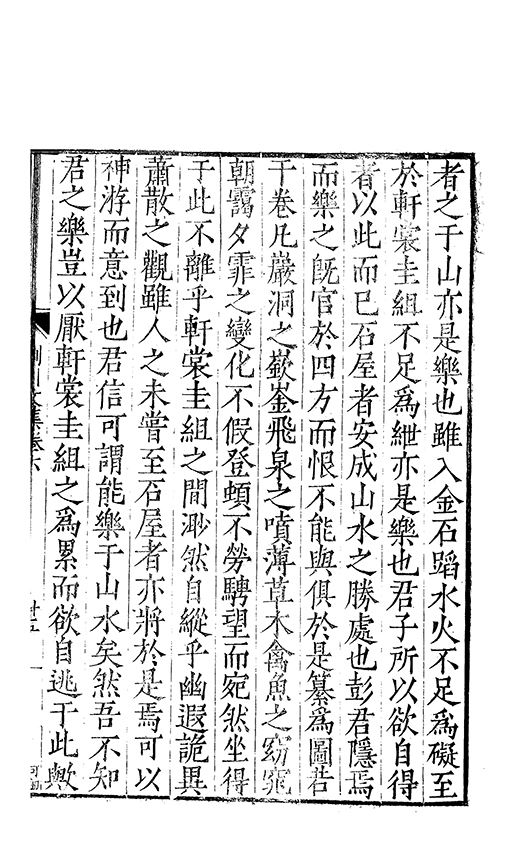 者之于山亦是樂也雖入金石蹈水火不足為礙至
於軒裳圭組不足為紲亦是樂也君子所以欲自得
者以此而已石屋者安成山水之勝處也彭君隱焉
而樂之旣官於四方而恨不能與俱於是纂為圖若
干卷凡巖洞之嶔崟飛泉之噴薄草木禽魚之窈窕
朝靄夕霏之變化不假登頓不勞騁望而宛然坐得
于此不離乎軒裳圭組之間渺然自縱乎幽遐詭異
蕭散之觀雖人之未嘗至石屋者亦將於是焉可以
神游而意到也君信可謂能樂于山水矣然吾不知
君之樂豈以厭軒裳圭組之為累而欲自逃于此歟
荆川文集卷六
廿五